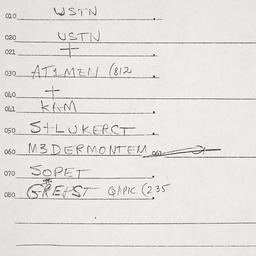 010 USTN
020 USTN
021 +
030 ATIMEN (812
040 +
041 KAM
050 S+LUKERCT
060 M3DERMONTEM
070 SOPET
080 GREFST QAPIC (235